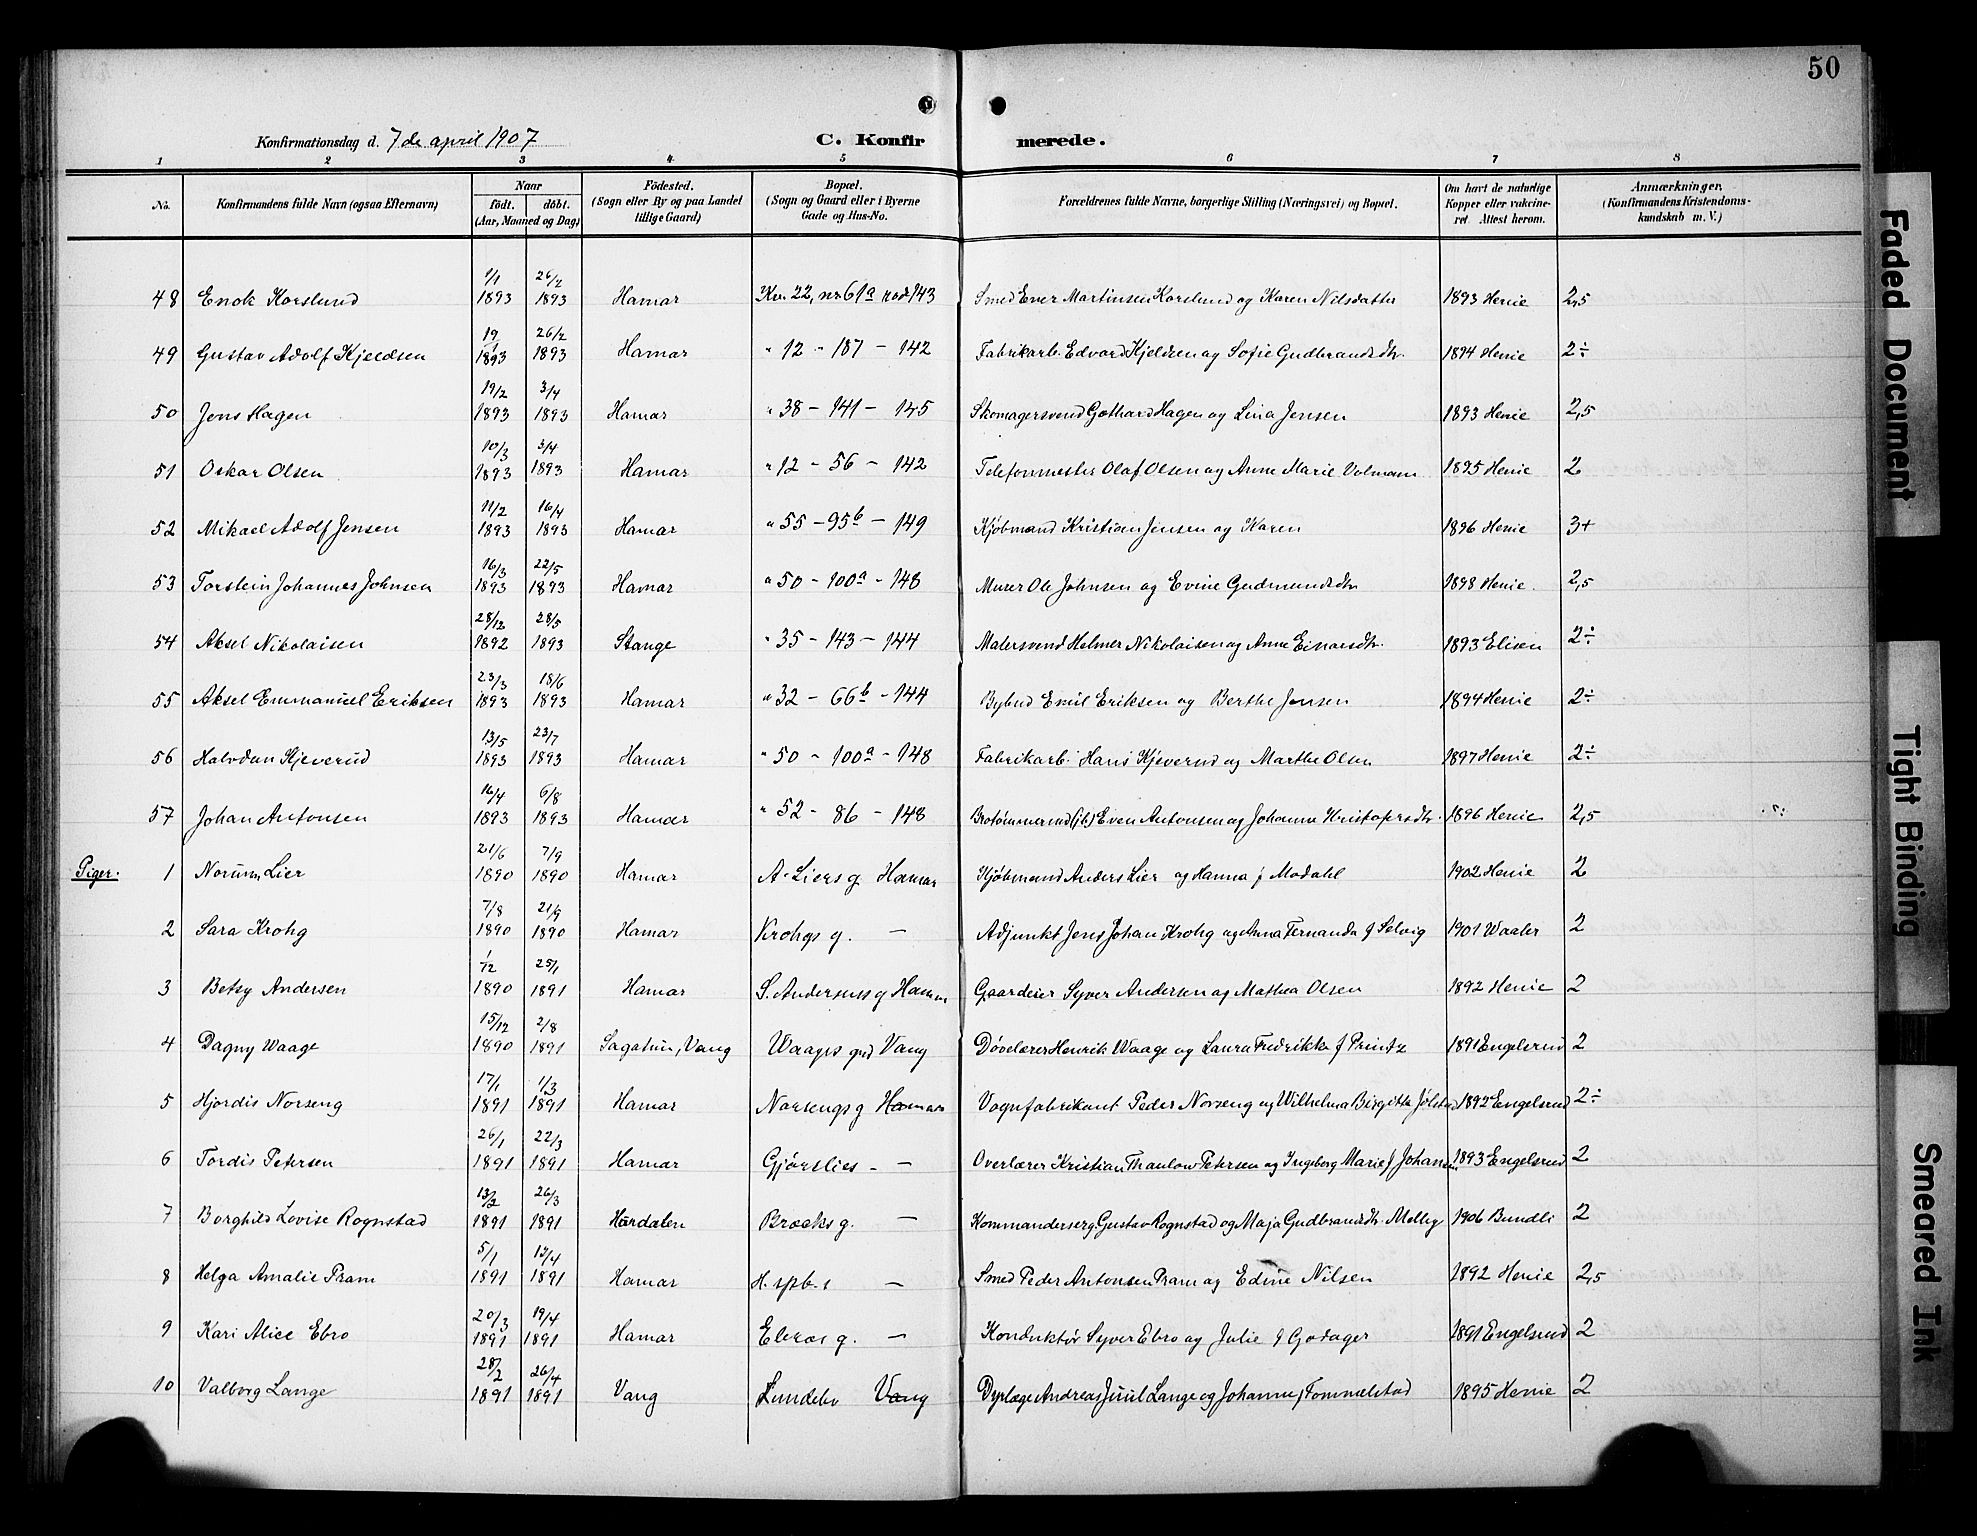 50
Konfirmationsdag d. 7de april 1907
C. Konfirmerede.
1 2 3 4 5 6 7 8
No. Konfirmandens fulde Navn (ogsaa Efternavn) Naar født. døbt. (Aar, Maaned og Dag) Fødested. (Sogn eller By og paa Landet tillige Gaard) Bopæl. (Sogn og Gaard eller i Byerne Gade og Hus-No. Forældrenes fulde Navne, borgerlige Stilling (Næringsvei) og Bopæl. Om havt de naturlige Kopper eller vakcineret Attest herom. Anmærkninger. (Konfirmandens Kristendomskundskab m. V.)
48 Enok Korslund 1/1 1893 26/2 1893 Hamar Kv. 22, nr 61a rode 143 Smed Ever Martinsen Korslund og Karen Nilsdatter 1893 Henie 2,5
49 Gustav Adolf Kjeldsen 19/1 1893 26/2 1893 Hamar " 12 - 187 - 142 Fabrikarb. Edvard Kjeldsen og Sofie Gudbrandsdtr. 1894 Henie 2÷
50 Jens Hagen 19/2 1893 3/4 1893 Hamar " 38 - 141 - 145 Skomagersvend Gothard Hagen og Lina Jensen 1893 Henie 2,5
51 Oskar Olsen 10/3 1893 3/4 1893 Hamar " 12 - 56 - 142 Telefonmester Olaf Olsen og Anne Marie Volmann 1895 Henie 2
52 Mikael Adolf Jensen 11/2 1893 16/4 1893 Hamar " 55 - 95b - 149 Kjøbmand Kristian Jensen og Karen 1896 Henie 3+
53 Torstein Johannes Johnsen 16/3 1893 22/5 1893 Hamar " 50 - 100a - 148 Murer Ole Johnsen og Evine Gudmundsdtr 1898 Henie. 2,5
54 Aksel Nikolaisen 28/12 1892 28/5 1893 Stange " 35 - 143 - 144 Malersvend Helmer Nikolaisen og Anne Einarsdtr. 1893 Elisen 2÷
55 Aksel Emmanuel Eriksen 23/3 1893 18/6 1893 Hamar " 32 - 66b - 144 Bybud Emil Eriksen og Berthe Jensen 1894 Henie 2÷
56 Halvdan Kjeverud 13/5 1893 23/7 1893 Hamar " 50 - 100a - 148 Fabrikarb. Hans Kjeverud og Marthe Olsen 1897 Henie 2÷
57 Johan Antonsen 16/4 1893 6/8 1893 Hamar " 52 - 86 - 148 Even Antonsen og Johanne Kristofersdtr. 1896 Henie 2,5
Piger. 1 Norunn Lier 21/6 1890 7/9 1890 Hamar A. Liers g. Hamar Kjøbmand Anders Lier og Hanna f Modahl 1902 Henie 2
2 Sara Krohg 7/8 1890 21/9 1890 Hamar Krohgs g. — Adjunkt Jens Johan Krohg og Anna Fernanda f Selvig 1901 Waaler 2
3 Betsy Andersen 1/12 1890 25/1 1891 Hamar S. Andersens g Hamar Gaardeier Syver Andersen og Mathea Olsen 1892 Henie 2
4 Dagny Waage 15/12 1890 2/8 1891 Sagatun, Vang Waages grd Vang Døvelærer Henrik Waage og Laura Fredrikke f Printz 1891 Engelsrud 2
5 Hjordis Norseng 17/1 1891 1/3 1891 Hamar Norsengs g Hamar Vognfabrikant Peder Norseng og Wilhelma Birgitte Jølstad 1892 Engelsrud 2÷
6 Tordis Petersen 26/1 1891 22/3 1891 Hamar Gjørslies - — Overlærer Kristian Thaulow Petersen og Ingeborg Marie f Johansen 1893 Engelsrud 2
7 Borghild Lovise Rognstad 13/2 1891 26/3 1891 Hurdalen Brocks g. — Kommanderserg. Gustav Rognstad og Maja Gudbrandsdtr. Melby 1906 Bundli 2
8 Helga Amalie Pram 5/1 1891 12/4 1891 Hamar H. spb. s — Smed Peder Antonsen Pram og Edine Nilsen 1892 Henie 2,5
9 Kari Alice Ebro 20/3 1891 19/4 1891 Hamar Ebros g. — Konduktør Syver Ebro og Julie f Godager 1891 Engelsrud 2
10 Valborg Lange 28/2 1891 26/4 1891 Vang Lundebo Vang Dyrlæge Andreas Juul Lange og Johanne f Tommelstad 1895 Henie 2
Faded Document
Tight Binding
Smeared Ink